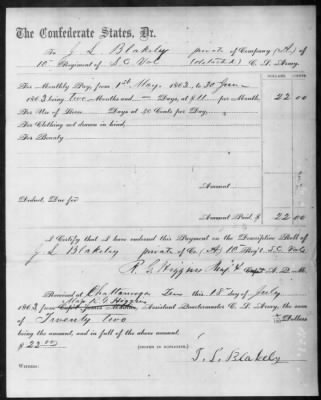 The Confederate States, Dr.
To J. L. Blakely private of Company (A) of
10 Regiment of S.C. Vol (detached) C. S. Army.
DOLLARS. CENTS.
For Monthly Pay, from 1st May 1863 to 30 June
1863 being two Months and — Days, at $11 per Month 22 00
For Use of Horse Days at 50 Cents per Day,
For Clothing not drawn in kind,
For Bounty
Amount
Deduct, Due for
Amount Paid $ 22 00
I Certify that I have endorsed this Payment on the Descriptive Roll of
J L Blakely private of Co. (A) 10 Reg't S.C. Vols
R. G. Higgins Maj & A. Q. M.
Received at Chattanooga Tenn this 18 day of July
1863 from Maj R G Higgins Assistant Quartermaster C. S. Army, the sum
of Twenty two Dollars
being the amount, and in full of the above amount.
$ 22.00 [SIGNED IN DUPLICATE.]
J. L. Blakely
Witness: